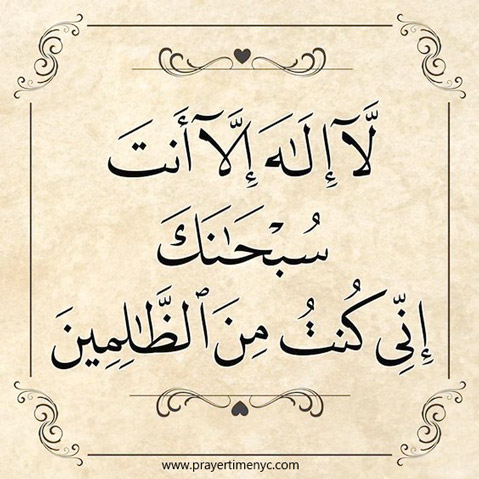 لَّآ إِلَـٰهَ إِلَّآ أَنتَ
سُبْحَـٰنَكَ
إِنِّى كُنتُ مِنَ ٱلظَّـٰلِمِينَ
www.prayertimenyc.com